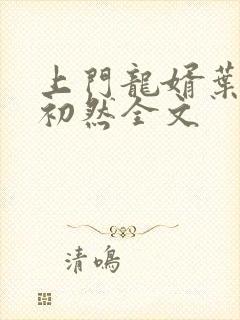 上門龍婿葉
初然全文
清鳴